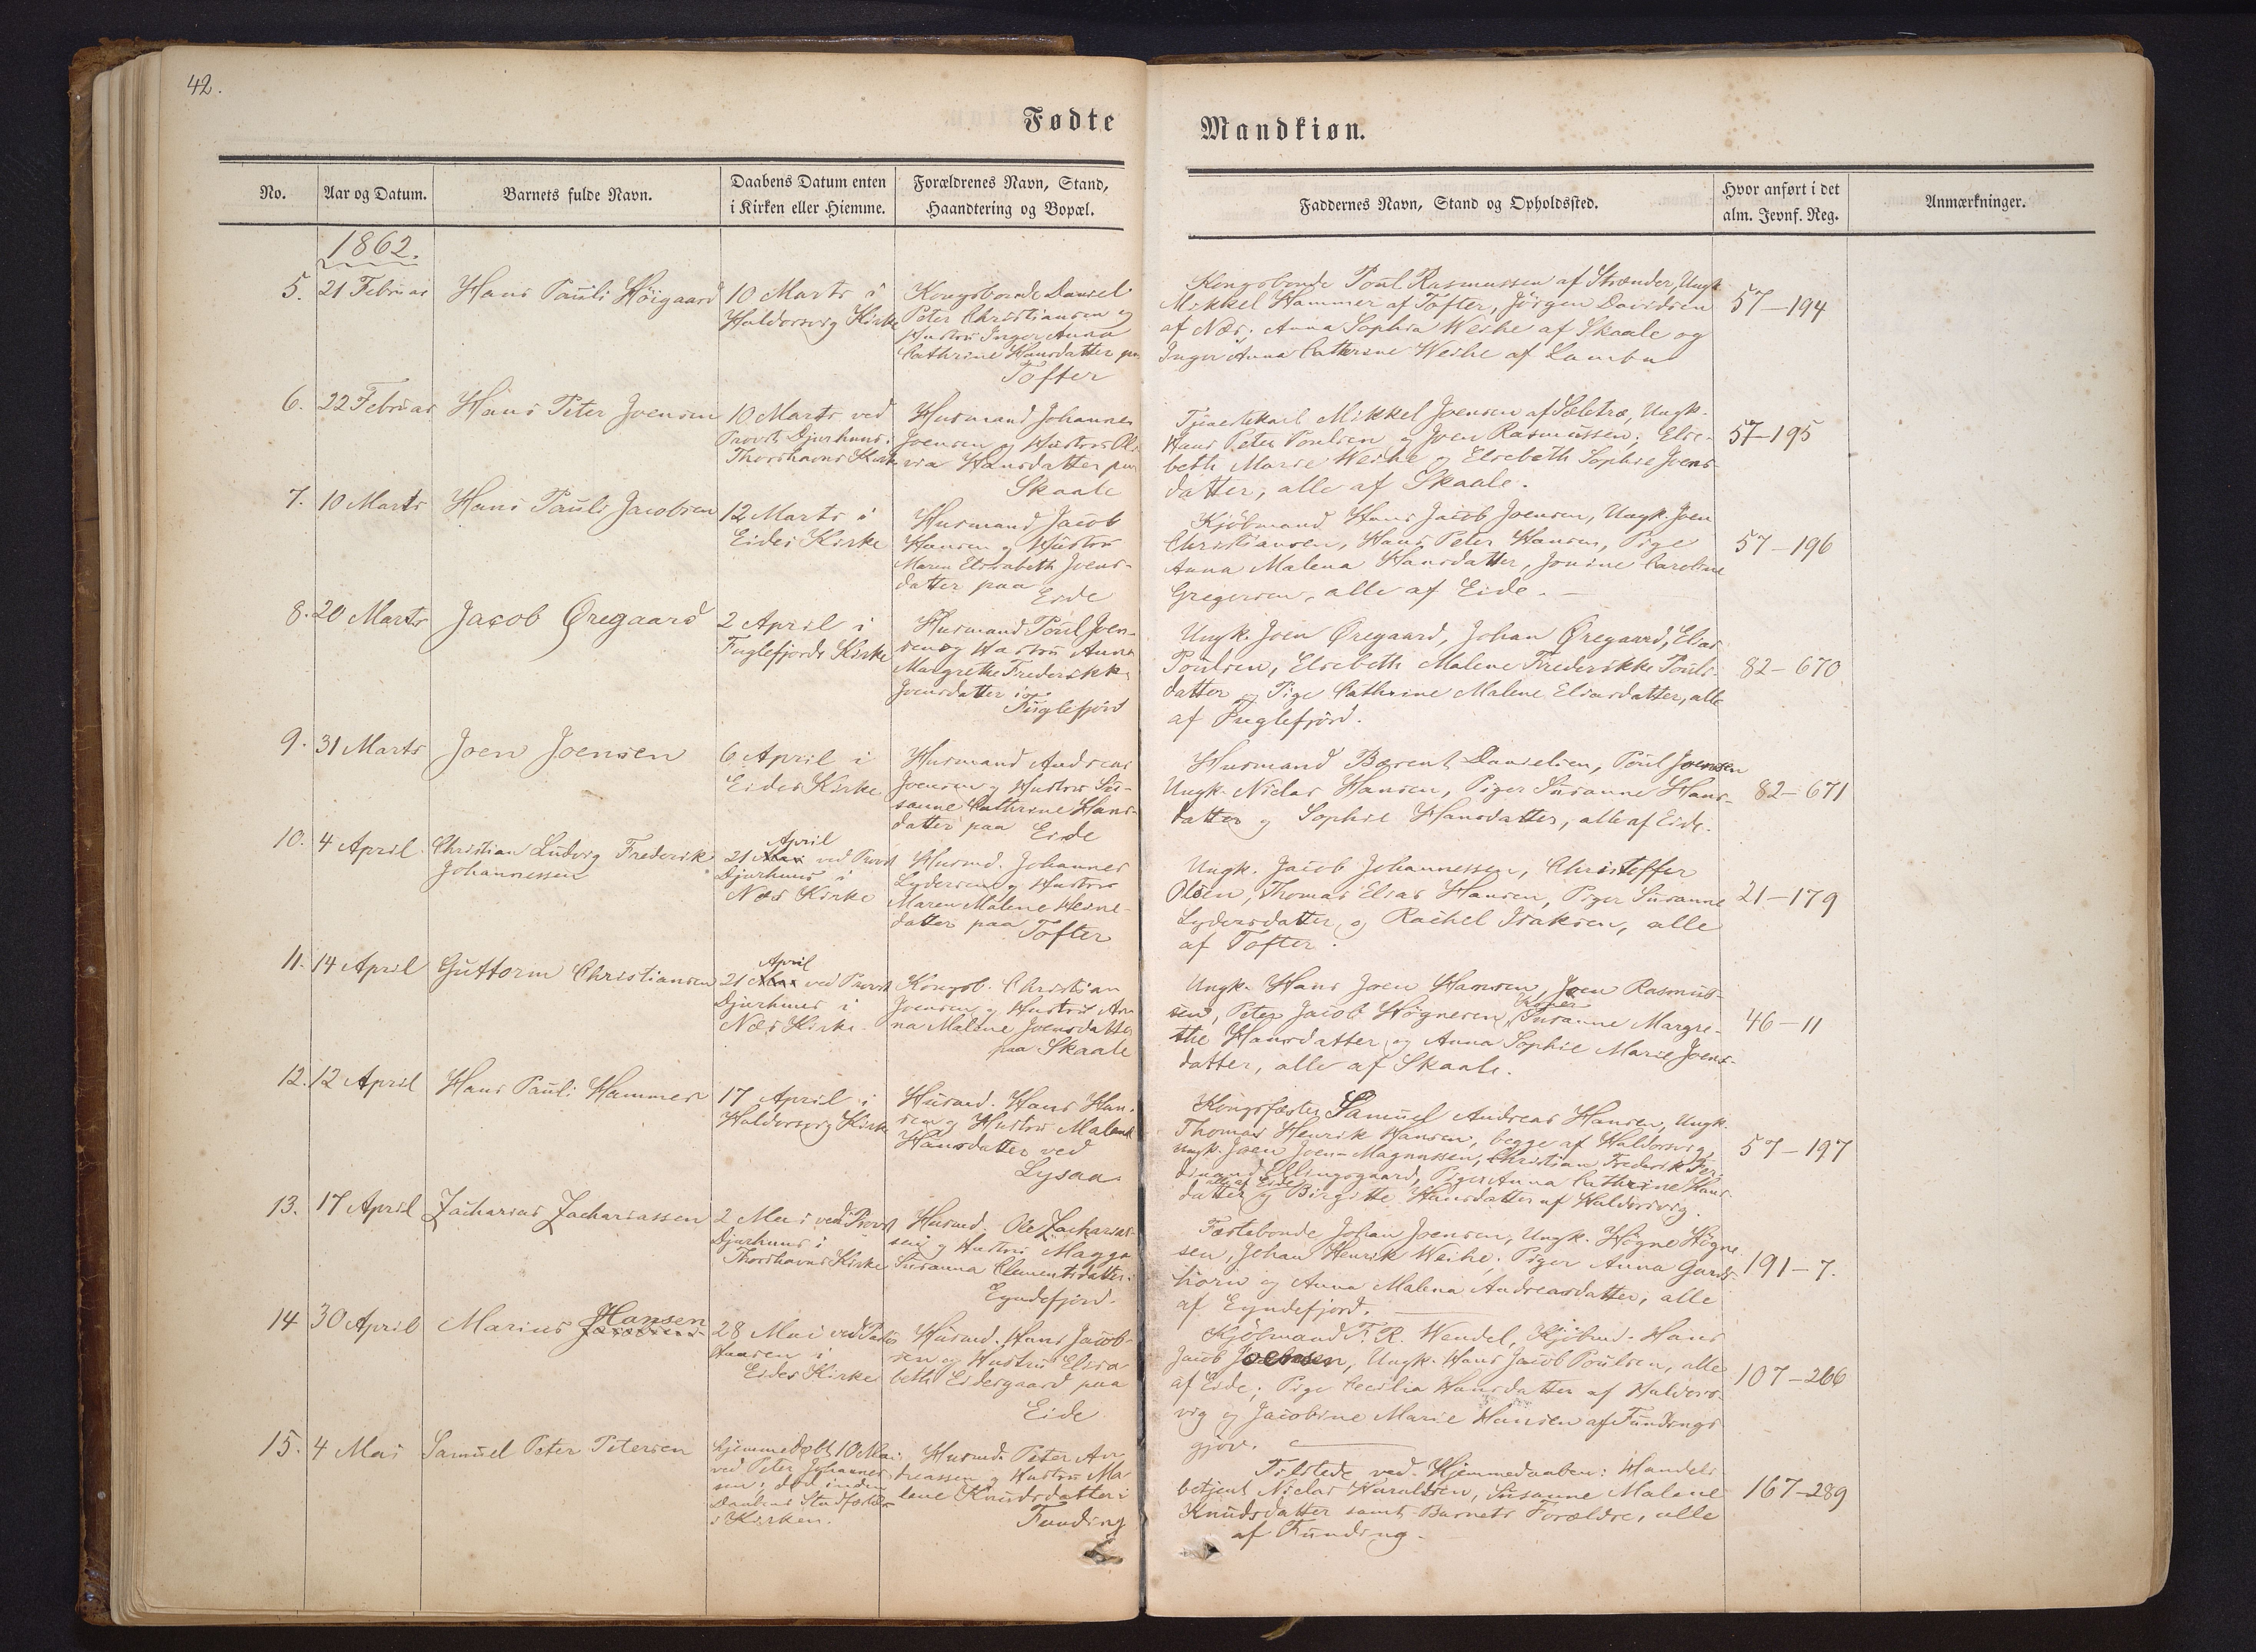 42.
Fødte
Mandkiøn.
No.
Aar og Datum.
Barnets fulde Navn.
Daabens Datum enten
i Kirken eller Hiemme.
Forældrenes Navn, Stand,
Haandtering og Bopæl.
Faddernes Navn, Stand og Opholdssted.
Hvor anført i det
alm. Jevnf. Reg.
Anmærkninger.
1862.
5.
21 Februar
Hans Pauli Høigaard
10 Marts i
Haldorsvig Kirke
Kongsbonde Daniel
Peter Christiansen og
Hustru Inger Anna
Cathrine Hansdatter paa
Tofter
Kongsbonde Poul Rasmussen af Strænder, Ungk.
Mikkel Hammer af Tofter, Jörgen Davidsen
af Næs; Anna Sophia Weihe af Skaale og
Inger Anna Catherine Weihe af Lamba
57-194
6.
22 Februar
Hans Peter Joensen
10 Marts ved
Provst Djurhuus i
Thorshavns Kirke
Husmand Johannes
Joensen og Hustru Oli-
via Hansdatter paa
Skaale
Tjenestekarl Mikkel Joensen af Sæletræ, Ungk.
Hans Peter Poulsen og Joen Rasmussen; Else-
beth Marie Weihe og Elsebeth Sophie Joens-
datter, alle af Skaale.
57-195
7.
10 Marts
Hans Pauli Jacobsen
12 Marts i
Eides Kirke
Husmand Jacob
Hansen og Hustru
Maren Elisabeth Joens-
datter paa
Eide
Kjøbmand Hans Jacob Joensen, Ungk. Joen
Christiansen, Hans Peter Hansen, Pige
Anna Malena Hansdatter, Jonine Caroline
Gregersen, alle af Eide. —
57-196
8.
20 Marts
Jacob Øregaard
2 April i
Fuglefjords Kirke
Husmand Poul Joen-
sen og Hustru Anna
Margrethe Frederikke
Joensdatter i
Fuglefjord
Ungk. Joen Øregaard, Johan Øregaard, Elias
Poulsen, Elsebeth Malene Frederikke Pouls-
datter og Pige Cathrine Malene Eliasdatter, alle
af Fuglefjord.
82-670
9.
31 Marts
Joen Joensen
6 April i
Eides Kirke
Husmand Andreas
Joensen og Hustru Su-
sanne Cathrine Hans-
datter paa Eide
Husmand Bærent Danielsen, Poul Joensen
Ungk. Niclas Hansen, Piger Susanne Hans-
datter og Sophie Hansdatter, alle af Eide.
82-671
10.
4 April
Christian Ludvig Frederik
Johannessen
April
21 Mai ved Provst
Djurhuus i
Næs Kirke
Husmd. Johannes
Lydersen og Hustru
Maren Malene Heine-
datter paa Tofter
Ungk. Jacob Johannessen, Christoffer
Olsen, Thomas Elias Hansen, Piger Susanne
Lydersdatter og Rachel Isaksen, alle
af Tofter.
21-179
11.
14 April
Guttorm Christiansen
April
21 Mai ved Provst
Djurhuus i
Næs Kirke
Kongsb. Christian
Joensen og Hustru An-
na Malene Joensdatter
paa Skaale
Ungk. Hans Joen Hansen, Joen Rasmus-
sen, Peter Jacob Høgnesen, Susanne Margre-
the Hansdatter og Anna Sophie Marie Joens-
datter, alle af Skaale.
46-11
12.
12 April
Hans Pauli Hammer
17 April i
Haldorsvig Kirke
Husmd. Hans Han-
sen og Hustru Malene
Hansdatter ved
Lysaa
Kongsfæster Samuel Andreas Hansen, Ungk.
Thomas Henrik Hansen, begge af Haldorsvig,
Ungk. Joen Joen-Magnussen, Christian Frederik Fer-
dinand Ellingsgaard, Piger Anna Cathrine Hans-
alle af Eide
datter og Birgitte Hansdatter af Haldorsvig.
57-197
13.
17 April
Zacharias Zachariassen
2 Mai ved Provst
Djurhuus i
Thorshavns Kirke
Husmd. Ole Zacharias-
sen og Hustru Magga
Susanna Clementsdatter i
Eyndefjord.
Fæstebonde Johan Joensen, Ungk. Høgne Høgne-
sen, Johan Henrik Weihe; Piger Anna Gards-
horn og Anna Malena Andreasdatter, alle
af Eyndefjord.
191-7.
14
30 April
Marius Hansen
Jacobsen
28 Mai ved Pastor
Aaasen i
Eides Kirke
Husmd. Hans Jacob-
sen og Hustru Elisa-
beth Eidesgaard paa
Eide
Kjøbmand F. R. Wendel, Kjøbmd. Hans
Jacob Joensen, Ungk. Hans Jacob Poulsen, alle
af Eide; Pige Cecilia Hansdatter af Haldors-
vig og Jacobine Marie Hansen af Fundings-
gjov.
107-266
15.
4 Mai
Samuel Peter Petersen
hjemmedøbt 10 Mai
ved Peter Johannes-
sen; død inden
Daabens Stadfæstelse
i Kirken.
Husmd. Peter An-
dreassen og Hustru Ma-
lene Knudsdatter i
Funding
Tilstede ved Hjemmedaaben: Handels-
betjent Niclas Haraldsen, Susanne Malene
Knudsdatter samt Barnets Forældre, alle
af Funding.
167-289